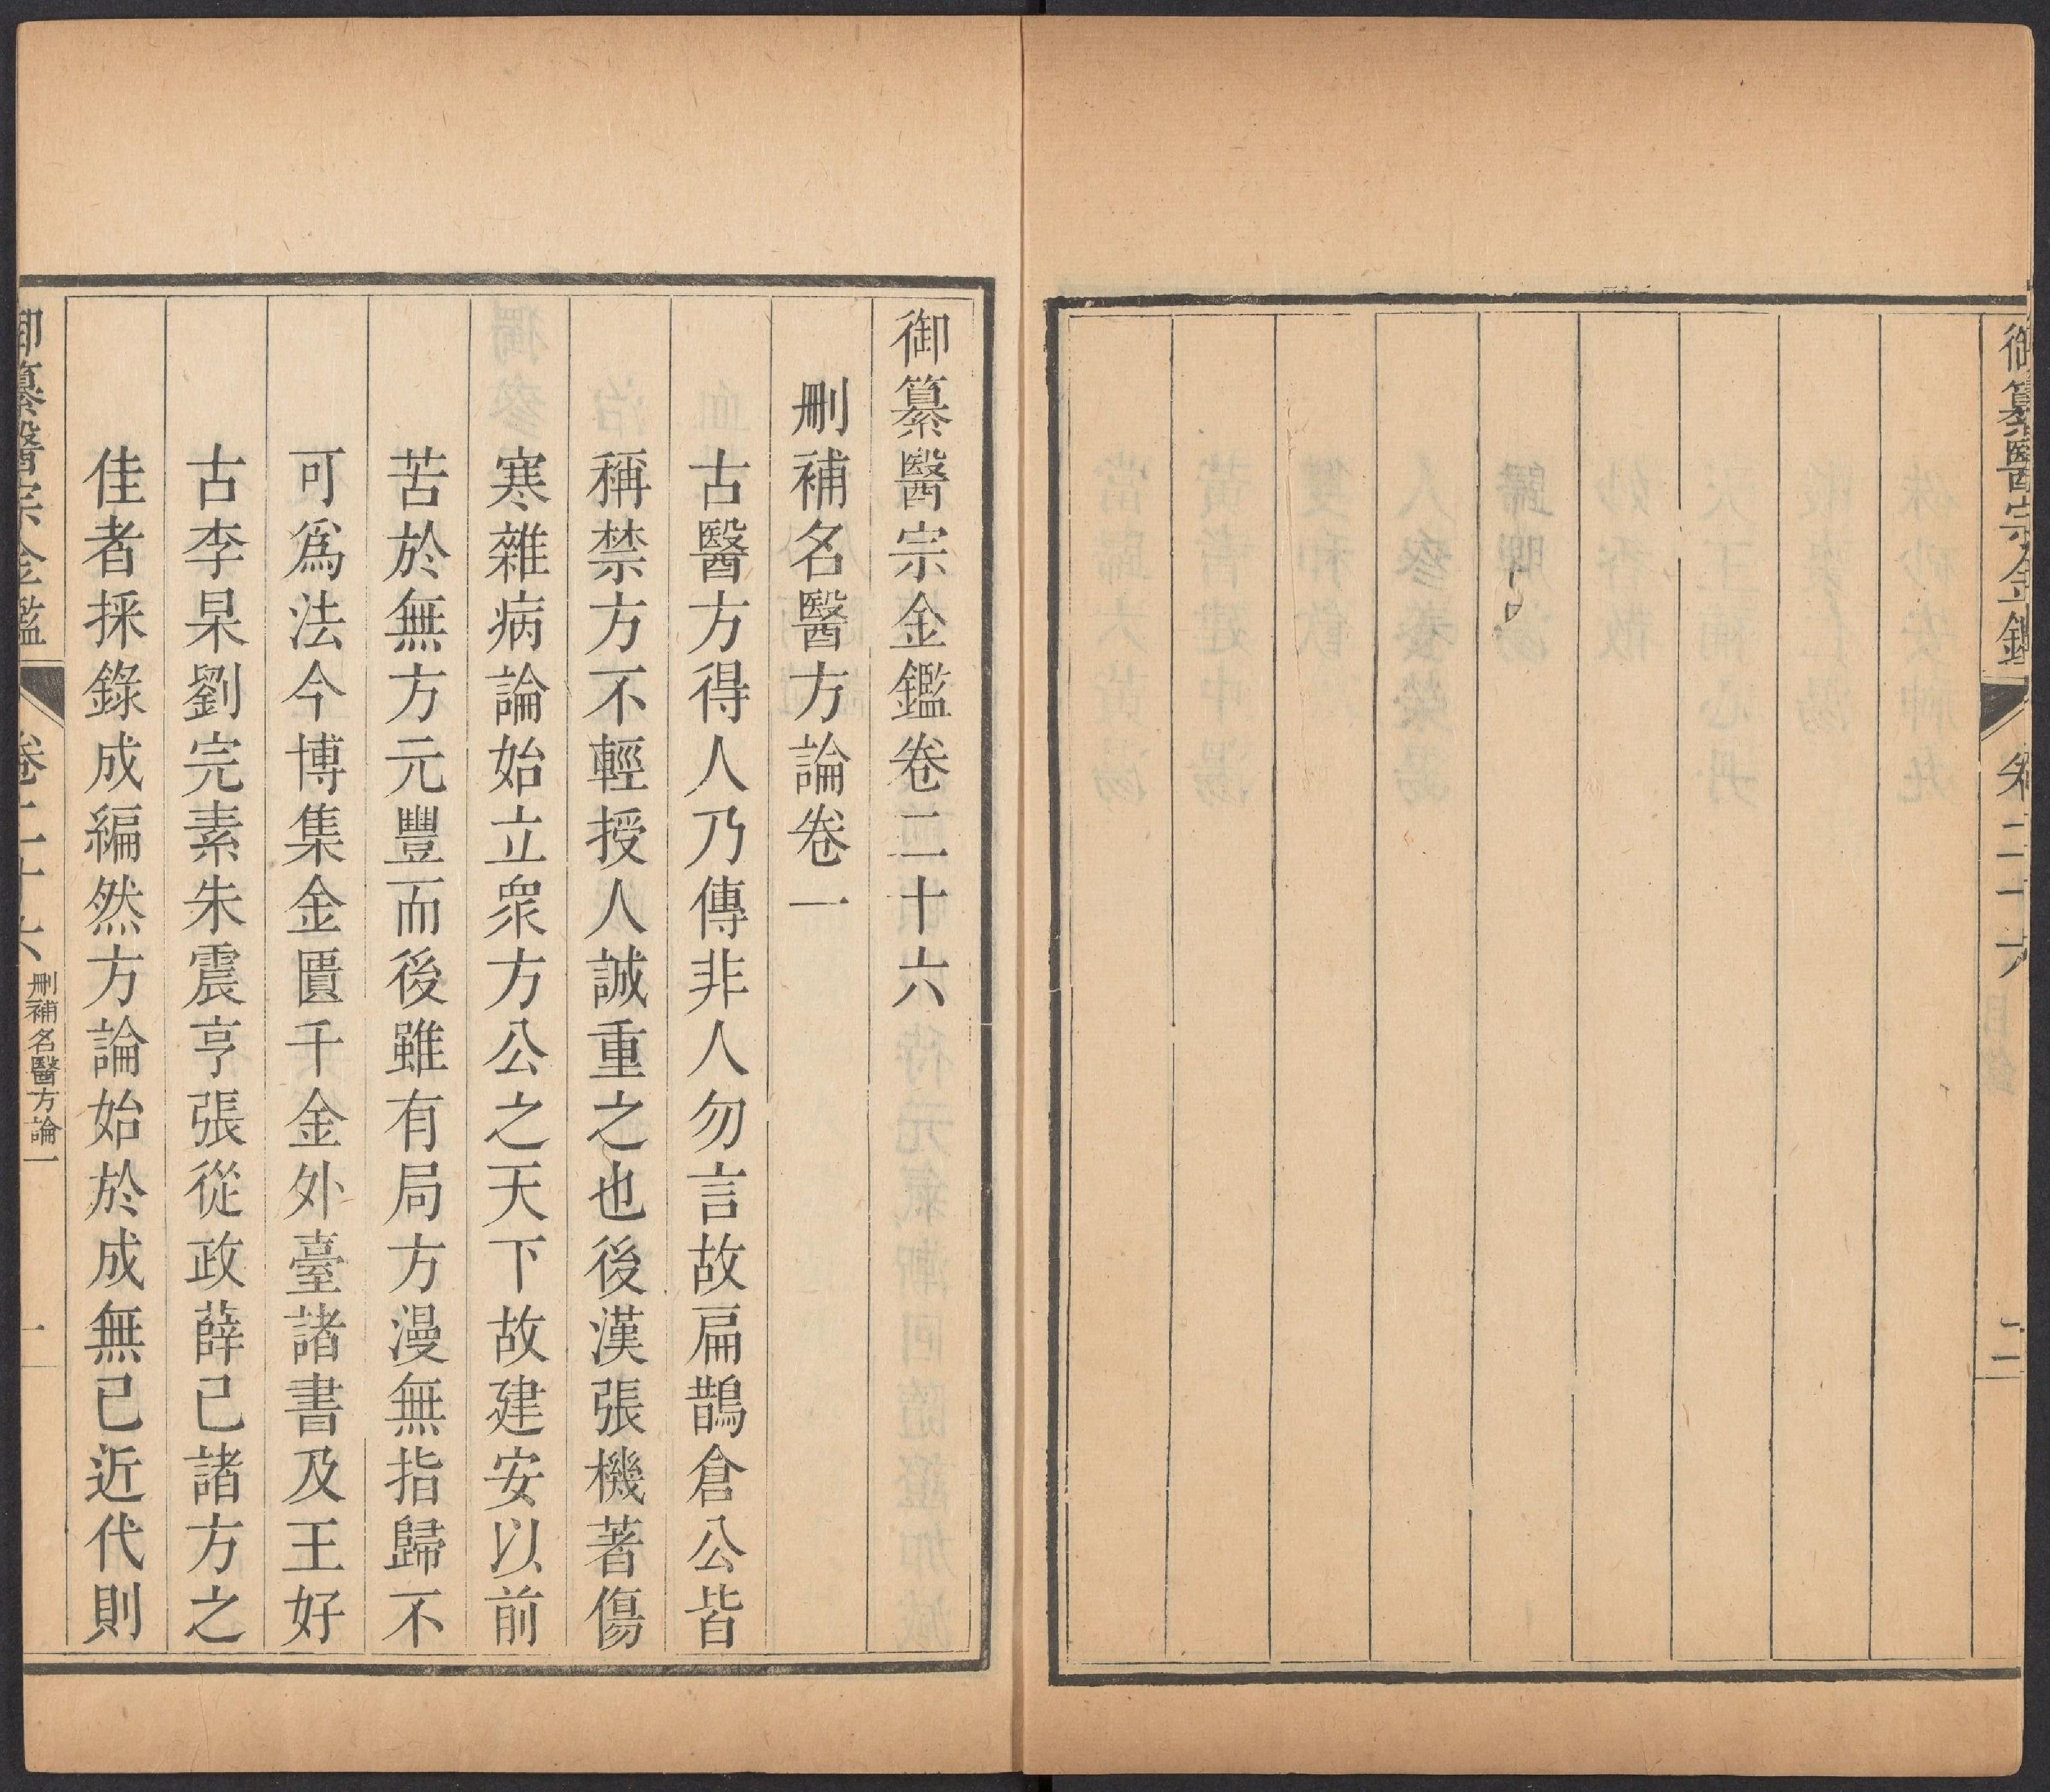 御纂醫宗金鑑 卷二十六 二
御纂醫宗金鑑卷二十六
刪補名醫方論卷一
古醫方得人乃傳非人勿言故扁鵲倉公皆
稱禁方不輕授人誠重之也後漢張機著傷
寒雜病論始立眾方公之天下故建安以前
苦於無方元豐而後雖有局方漫無指歸不
可爲法今博集金匱千金外臺諸書及王好
古李杲劉完素朱震亨張從政薛己諸方之
佳者採錄成編然方論始於成無己近代則
御纂醫宗金鑑 卷二十六 刪補名醫方論一 一